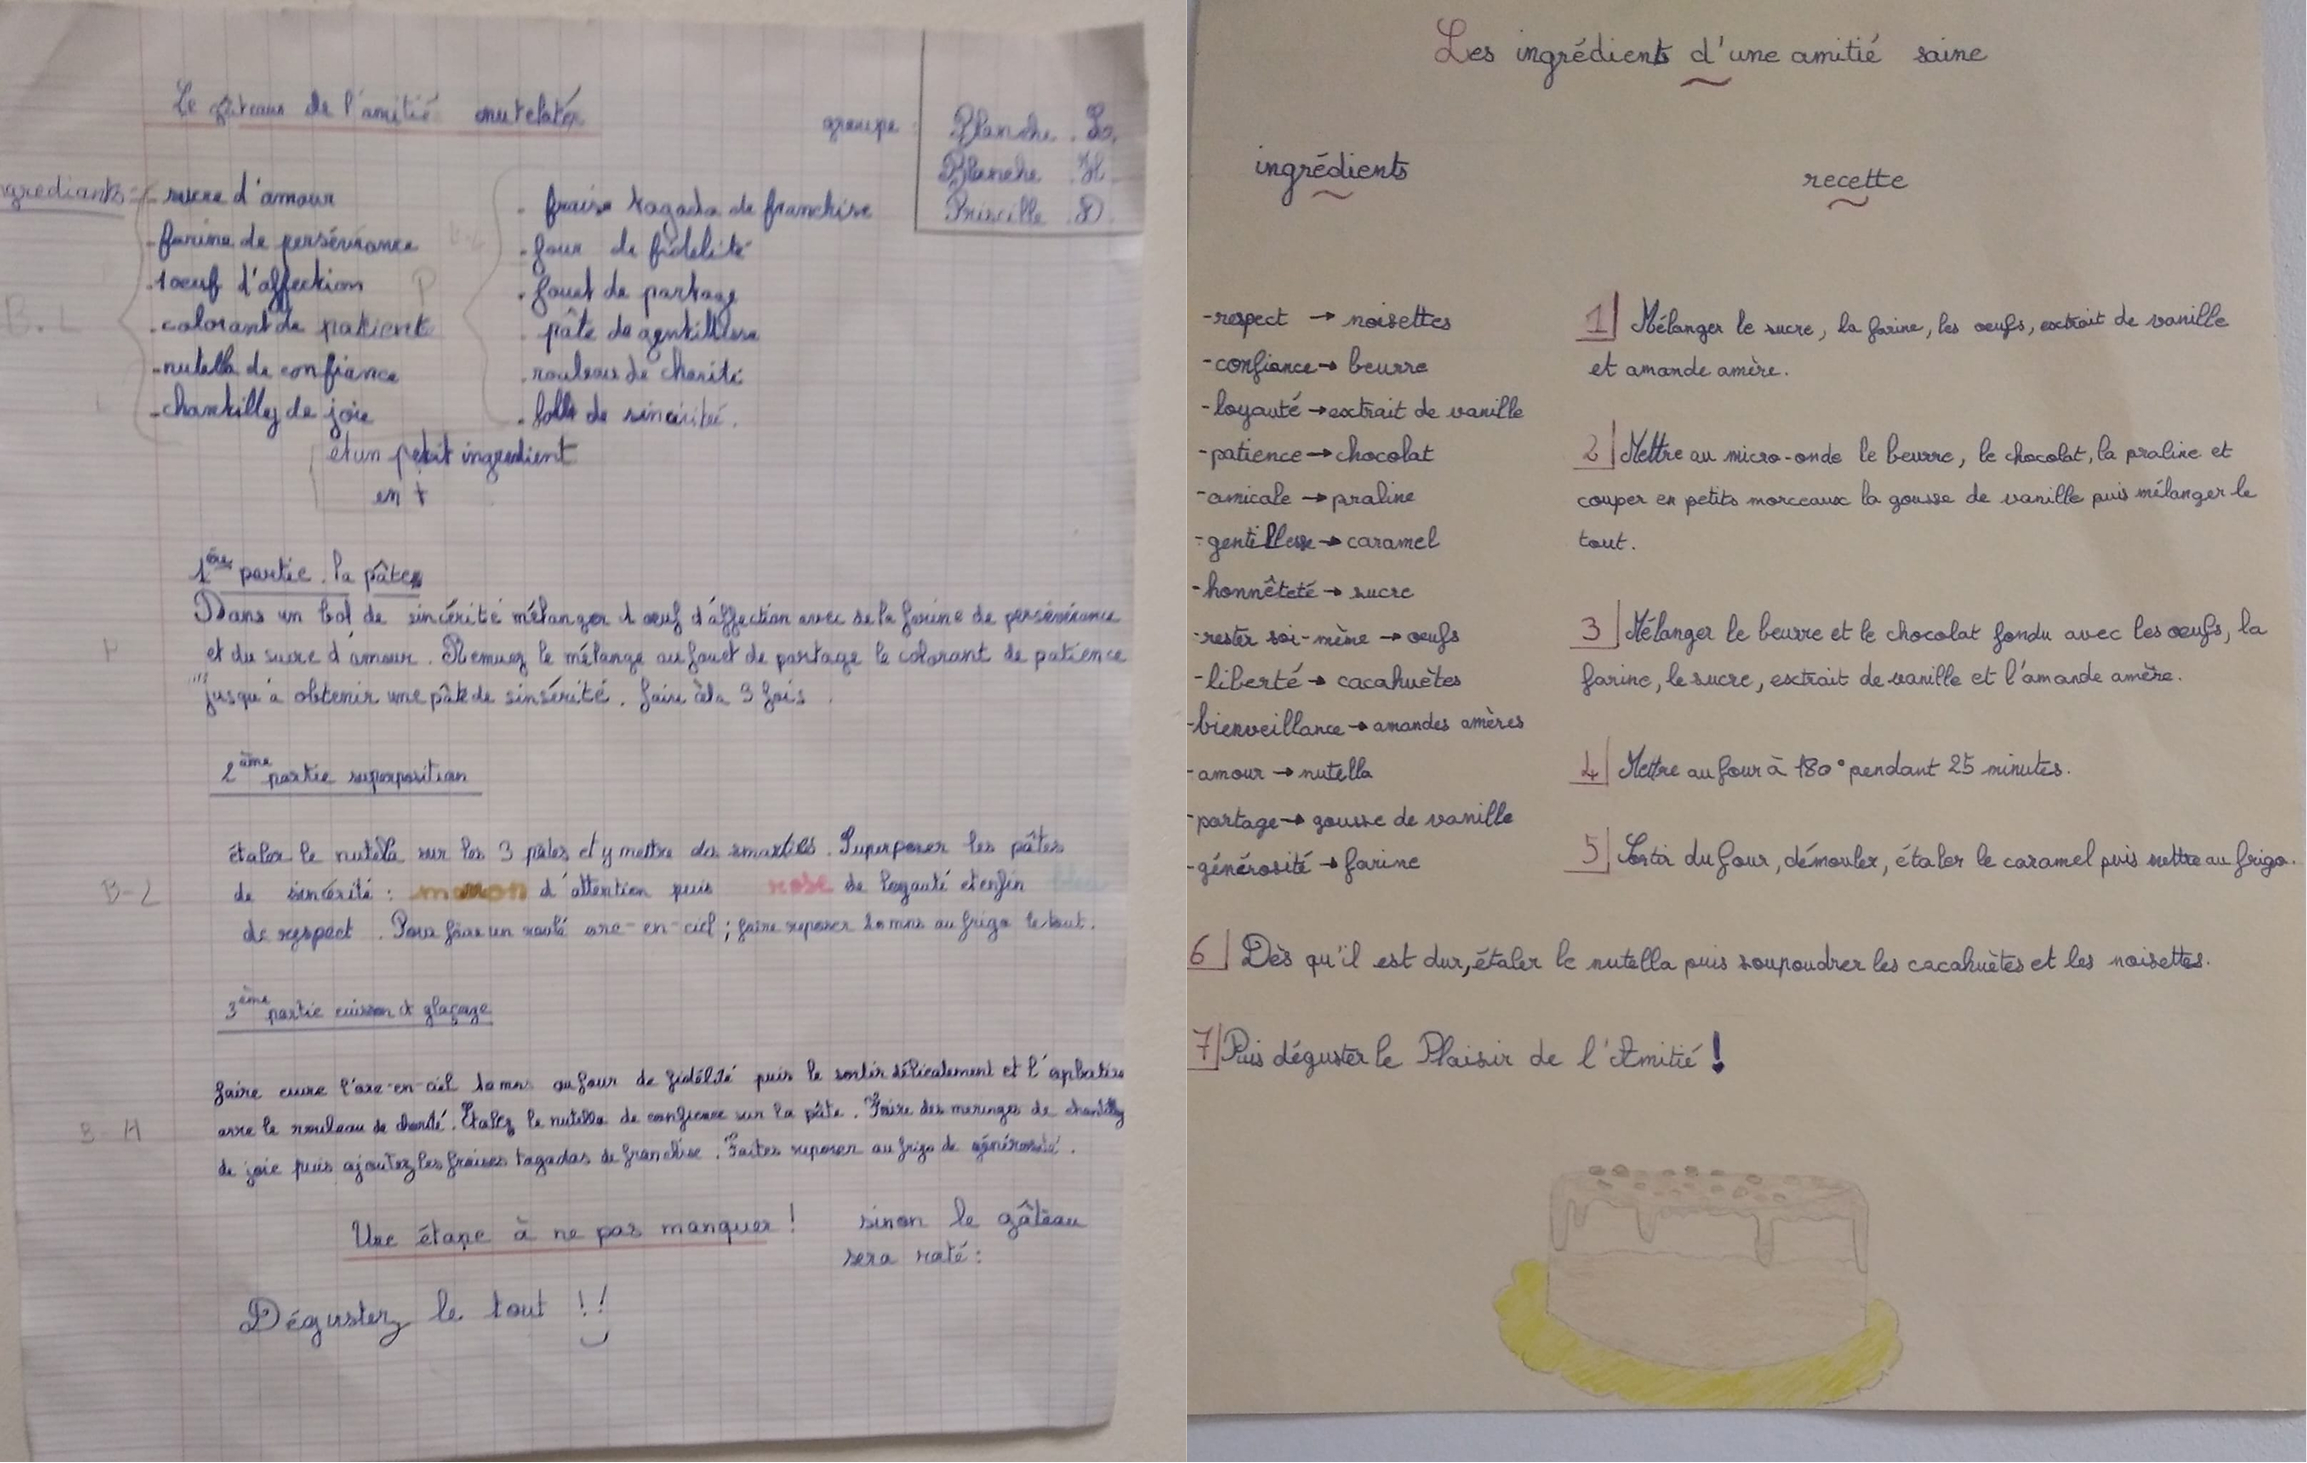 Le gâteaus de l'amitié nutelatés
groupe : Blanche . Lo.
Blanche . H.
Priscille . D.
ngrediants :
- sucre d'amour
- farine de persévérance
- 1 oeuf d'affection
- colorant de patient
- nutella de confiance
- chantilly de joie
B.L
P
. fraise tagada de franchise
. four de fidélité
. fouet de partage
. pâte de gentillesse
. rouleau de charité
. de sincérité.
et un petit ingredient
en +
1ère partie . la pâte
Dans un bol de sincérité mélanger 1 oeuf d'affection avec de la farine de persévérance
P
et du sucre d'amour. Remuez le mélange au fouet de partage le colorant de patience
jusqu'à obtenir une pâte de sinsérité. faire 3 fois.
2ème partie superposition
étaler le nutella sur les 3 pâtes et y mettre des smarties. Superposer les pâtes
B-L
de sincérité : marron d'attention puis rose de loyauté et enfin bleu
de respect. Pour faire un roulé arc-en-ciel ; faire reposer 10 mns au frigo le tout.
3ème partie cuisson & glaçage
faire cuire l'arc-en-ciel 10 mns au four de fidélité puis le sortir délicatement et l'aplatire
B-H
avec le rouleau de charité. Étalez le nutella de confience sur la pâte. Faire des meringes de chantilly
de joie puis ajoutez les fraises tagadas de franchise. Faites reposer au frigo de générosité.
Une étape à ne pas manquer ! sinon le gâteau
sera raté :
Dégustez le tout !!
Les ingrédients d'une amitié saine
ingrédients
-respect → noisettes
-confiance → beurre
-loyauté → extrait de vanille
-patience → chocolat
-amicale → praline
-gentillesse → caramel
-honnêteté → sucre
-rester soi-même → oeufs
-liberté → cacahuètes
-bienveillance → amandes amères
-amour → nutella
-partage → gousse de vanille
-générosité → farine
recette
1| Mélanger le sucre, la farine, les oeufs, extrait de vanille
et amande amère.
2| Mettre au micro-onde le beurre, le chocolat, la praline et
couper en petits morceaux la gousse de vanille puis mélanger le
tout.
3| Mélanger le beurre et le chocolat fondu avec les oeufs, la
farine, le sucre, extrait de vanille et l'amande amère.
4| Mettre au four à 180° pendant 25 minutes.
5| Sortir du four, démouler, étaler le caramel puis mettre au frigo.
6| Dès qu'il est dur, étaler le nutella puis soupoudrer les cacahuètes et les noisettes.
7| Puis déguster le Plaisir de l'Amitié !